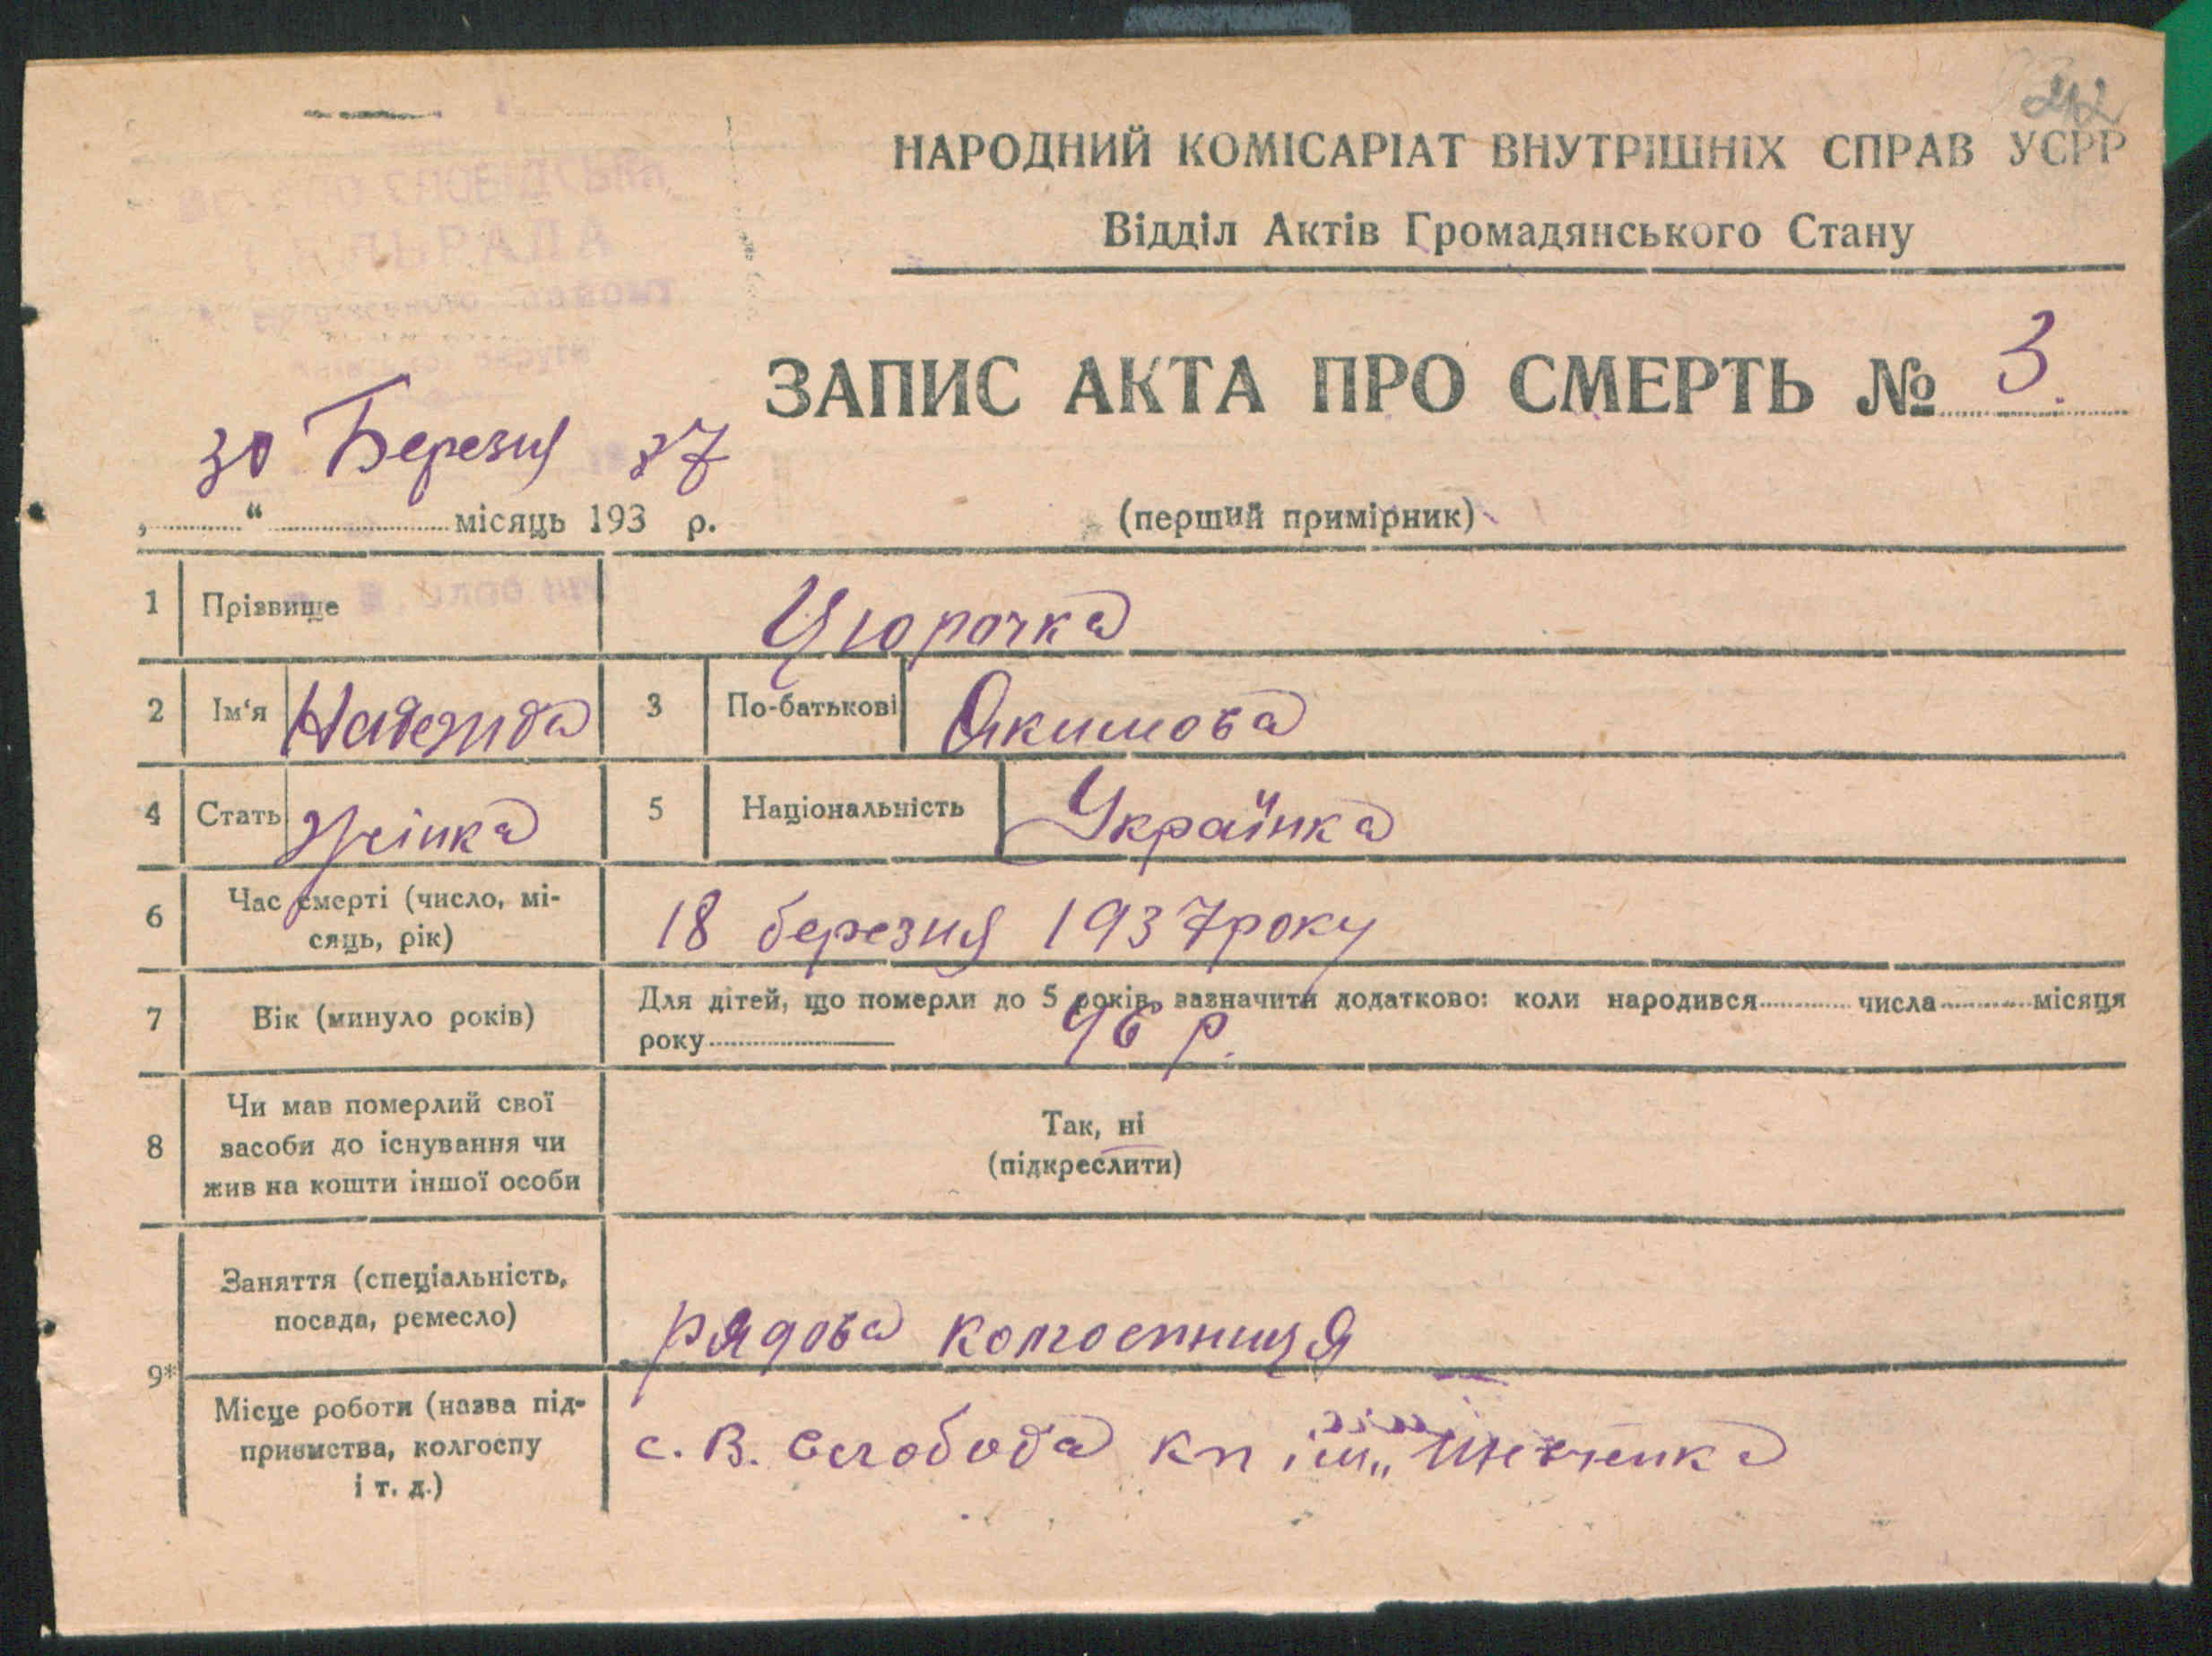 НАРОДНИЙ КОМІСАРІАТ ВНУТРІШНІХ СПРАВ УСРР
Відділ Актів Громадянського Стану
СІЛЬРАДА
ЗАПИС АКТА ПРО СМЕРТЬ № 3.
30 Березня 37
„ “ місяць 193 р.
(перший примірник)
1 Прізвище Цюрочка
2 Ім‘я Надежда 3 По-батькові Якимова
4 Стать Жінка 5 Національність Українка
6 Час смерті (число, мі-
сяць, рік) 18 березня 1937 року
7 Вік (минуло років) Для дітей, що померли до 5 років, зазначити додатково: коли народився числа місяця
року 96 р.
8 Чи мав померлий свої
засоби до існування чи
жив на кошти іншої особи
Так, ні
(підкреслити)
9* Заняття (спеціальність,
посада, ремесло) рядова колгоспниця
Місце роботи (назва під-
приємства, колгоспу
і т. д.) с. В. Слобода кп ім„ Шевченка